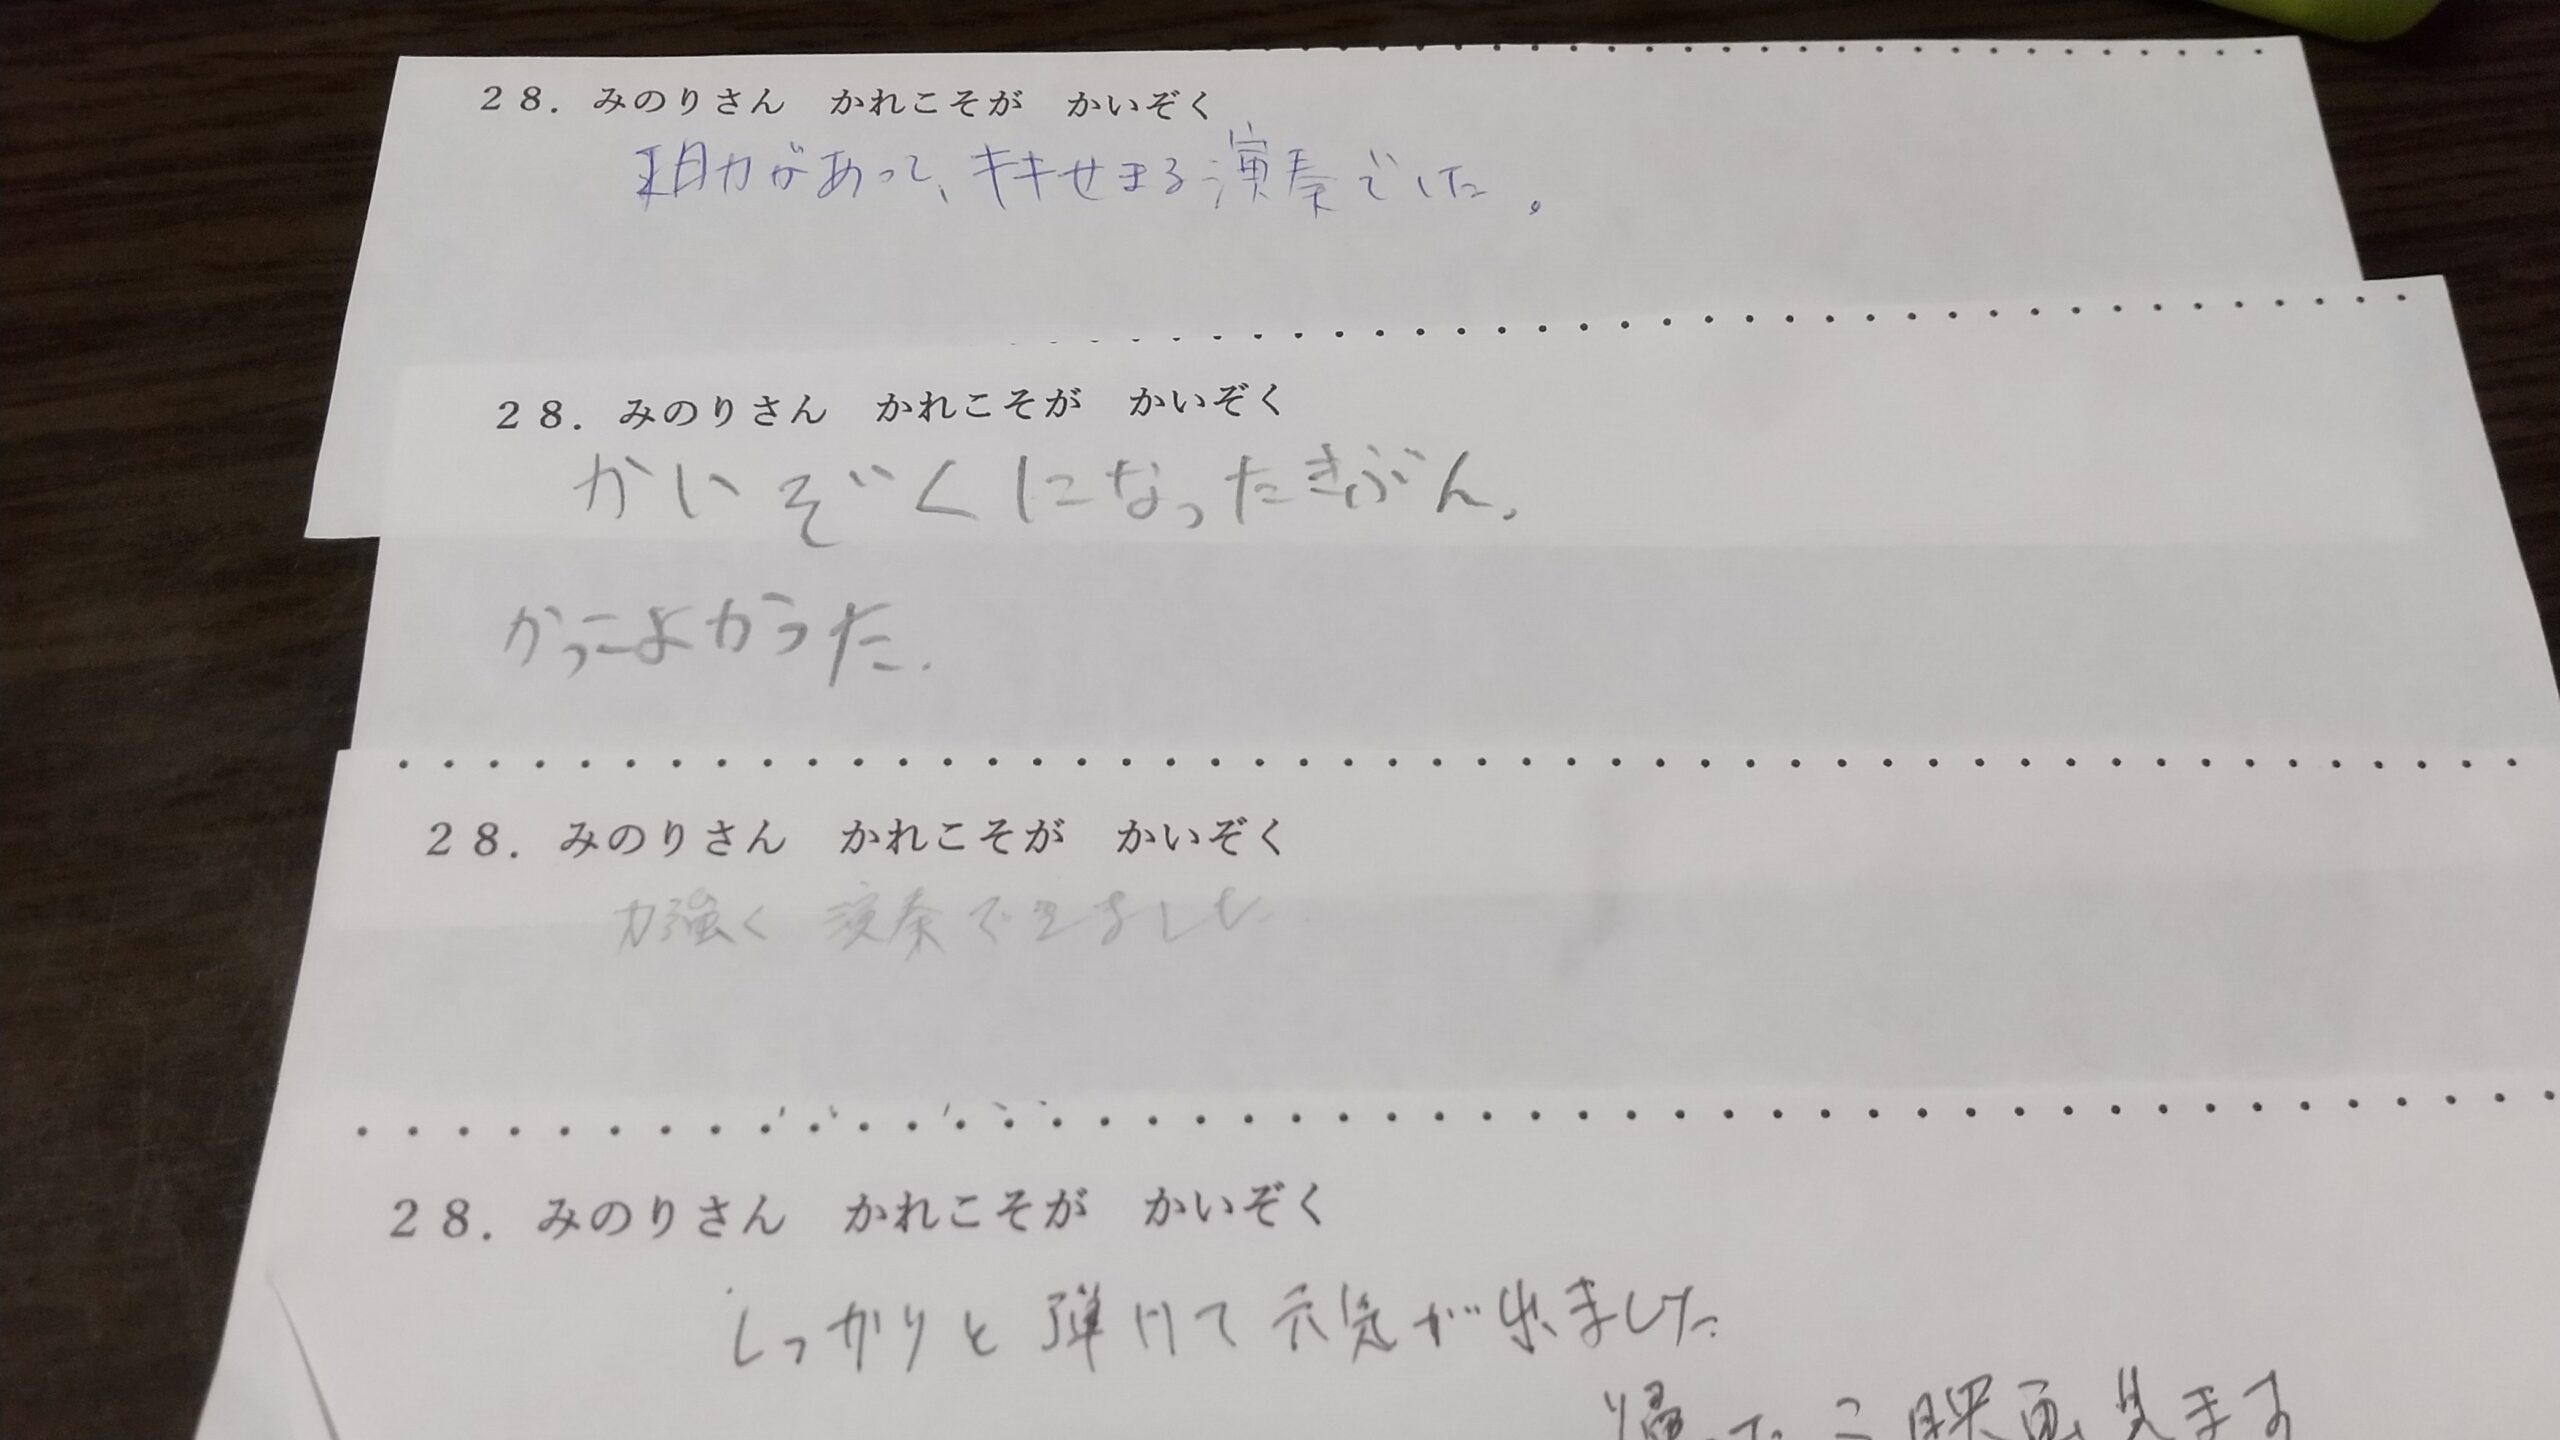 28. みのりさん　かれこそが　かいぞく
力があって、せまる演奏でした。
28. みのりさん　かれこそが　かいぞく
かいぞくになったきぶん。
かっこよかった.
28. みのりさん　かれこそが　かいぞく
力強く 演奏できました
28. みのりさん　かれこそが　かいぞく
しっかりと弾けて元気が出ました
映画見ます